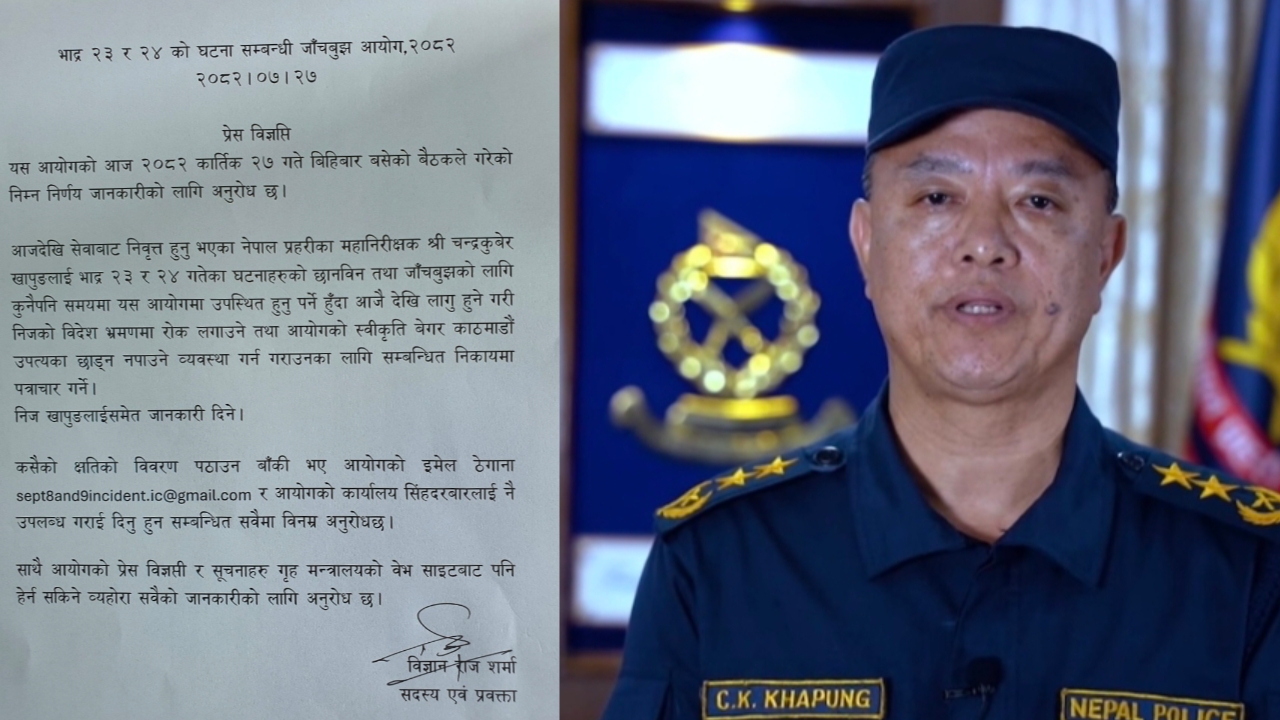 भाद्र २३ र २४ को घटना सम्बन्धी जाँचबुझ आयोग,२०८२
२०८२।०७।२७
प्रेस विज्ञप्ति
यस आयोगको आज २०८२ कार्तिक २७ गते बिहिबार बसेको बैठकले गरेको
निम्न निर्णय जानकारीको लागि अनुरोध छ।
आजदेखि सेवाबाट निवृत्त हुनु भएका नेपाल प्रहरीका महानिरीक्षक श्री चन्द्रकुबेर
खापुङलाई भाद्र २३ र २४ गतेका घटनाहरुको छानविन तथा जाँचबुझको लागि
कुनैपनि समयमा यस आयोगमा उपस्थित हुनु पर्ने हुँदा आजै देखि लागु हुने गरी
निजको विदेश भ्रमणमा रोक लगाउने तथा आयोगको स्वीकृति बेगर काठमाडौं
उपत्यका छाड्न नपाउने व्यवस्था गर्न गराउनका लागि सम्बन्धित निकायमा
पत्राचार गर्ने।
निज खापुङलाईसमेत जानकारी दिने।
कसैको क्षतिको विवरण पठाउन बाँकी भए आयोगको इमेल ठेगाना
sept8and9incident.ic@gmail.com र आयोगको कार्यालय सिंहदरबारलाई नै
उपलब्ध गराई दिनु हुन सम्बन्धित सवैमा विनम्र अनुरोधछ।
साथै आयोगको प्रेस विज्ञप्ती र सूचनाहरु गृह मन्त्रालयको वेभ साइटबाट पनि
हेर्न सकिने व्यहोरा सवैको जानकारीको लागि अनुरोध छ।
विज्ञान राज शर्मा
सदस्य एवं प्रवक्ता
C.K. KHAPUNG
NEPAL POLICE